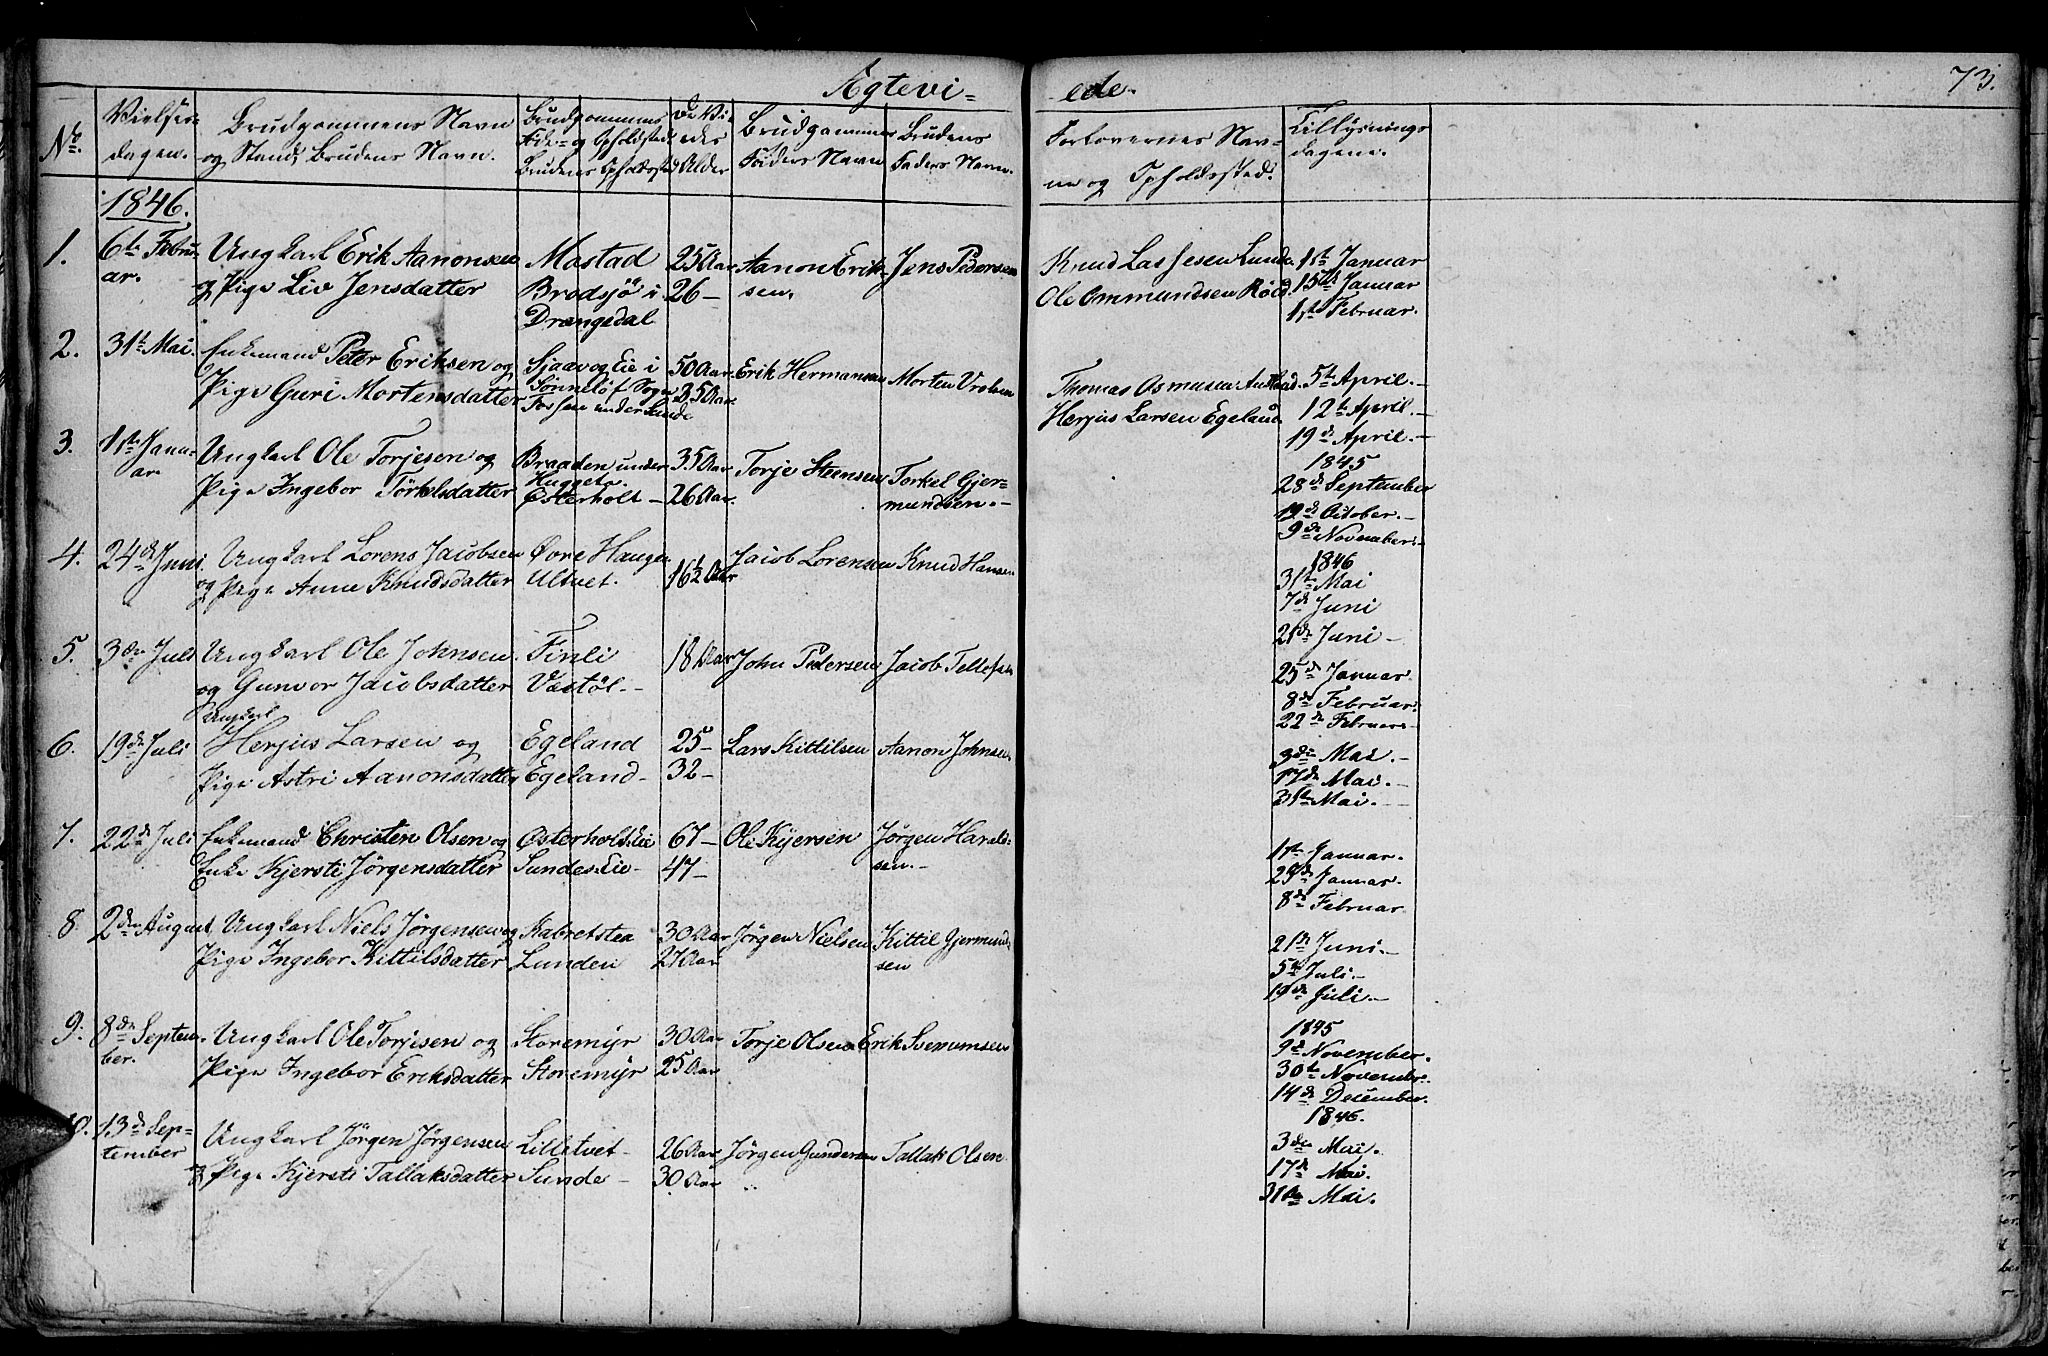 Ægtevi= ede.
73.
No.
Vielses=
dagen.
Brudgommens Navn
og Stand, Brudens Navn.
Brudgommens
Føde= og Opholdsted
Brudens Opholdssted
De Vi=
edes
Alder
Brudgommens
Faders Navn
Brudens
Faders Navn.
Forlovernes Nav=
ne og Opholdssted.
Tillysnings
dagene.
1846.
1. 6te Febru=
ar.
Ungkarl Erik Aanonsen
og Pige Liv Jensdatter
Mostad
Brodsjö i
Drangedal
25 Aar
26 —
Aanon Erik=
sen.
Jens Pedersen
Knud Lassesen Lunde
Ole Ommundsen Röid.
1ste Januar
15de Januar
1ste Februar.
2. 31te Mai.
Enkemand Peter Eriksen og
Pige Guri Mortensdatter
Sjaavog Eie i
Sönnelöf Sogn
under Lunde
50 Aar
35 Aar
Erik Hermansen
Morten Vrolsen
Thomas Osmusen
Herjus Larsen Egeland
5te April. —
12te April. —
19de April. —
3. 1ste Janu=
ar.
Ungkarl Ole Torjesen og
Pige Ingebor Törkelsdatter
Braaden under
Huggeto.
Österholt —
35 Aar
26 Aar.
Torje Steensen
Torkel Gjer=
mundsen. —
1845
28de September
19de October. —
9de November. —
4. 24de Juni
Ungkarl Lorens Jacobsen
og Pige Anne Knudsdatter
Øvre Haugen
Ultvet.
16½ Aar
Jacob Lorensen
Knud Hansen
1846
31te Mai
7de Juni
21de Juni —
5. 3die Juli
Ungkarl Ole Johnsen
og Gunvor Jacobsdatter
Finli
Vastöl. —
18 Aar
John Pedersen
Jacob Tellefsen
25de Januar.
8de Februar.
22de Februar. —
6. 19de Juli
Ungkarl
Herjus Larsen og
Pige Astri Aanonsdatter
Egeland
Egeland —
25 —
32 —
Lars Kittilsen
Aanon Johnsen
3die Mai. —
17de Mai. —
31te Mai. —
7. 22de Juli
Enkemand Christen Olsen og
Enke Kjersti Jörgensdatter
Österholds Eie
Sundes Eie —
67 —
47 —
Ole Kijersen
Jörgen Harald=
sen. —
1ste Januar.
25de Januar.
8de Februar
8. 2den August
Ungkarl Niels Jörgensen og
Pige Ingebor Kittilsdatter
Kabretsten
Lunden
30 Aar
27 Aar
Jörgen Nielsen
Kittil Gjermund=
sen
21de Juni. —
5te Juli. —
19de Juli. —
9. 8de Septem=
ber.
Ungkarl Ole Torjesen og
Pige Ingebor Eriksdatter
Storemyr
Storemyr
30 Aar
25 Aar
Torje Olsen
Erik Svenumsen
1845
9de November.
30te November.
14de December.
10. 13de Sep=
tember
Ungkarl Jörgen Jörgensen
og Pige Kjersti Tallaksdatter
Lilletvet —
Sunde —
26 Aar
30 Aar
Jörgen Gundersen
Tallak Olsen
1846.
3die Mai.
17de Mai.
31te Mai.